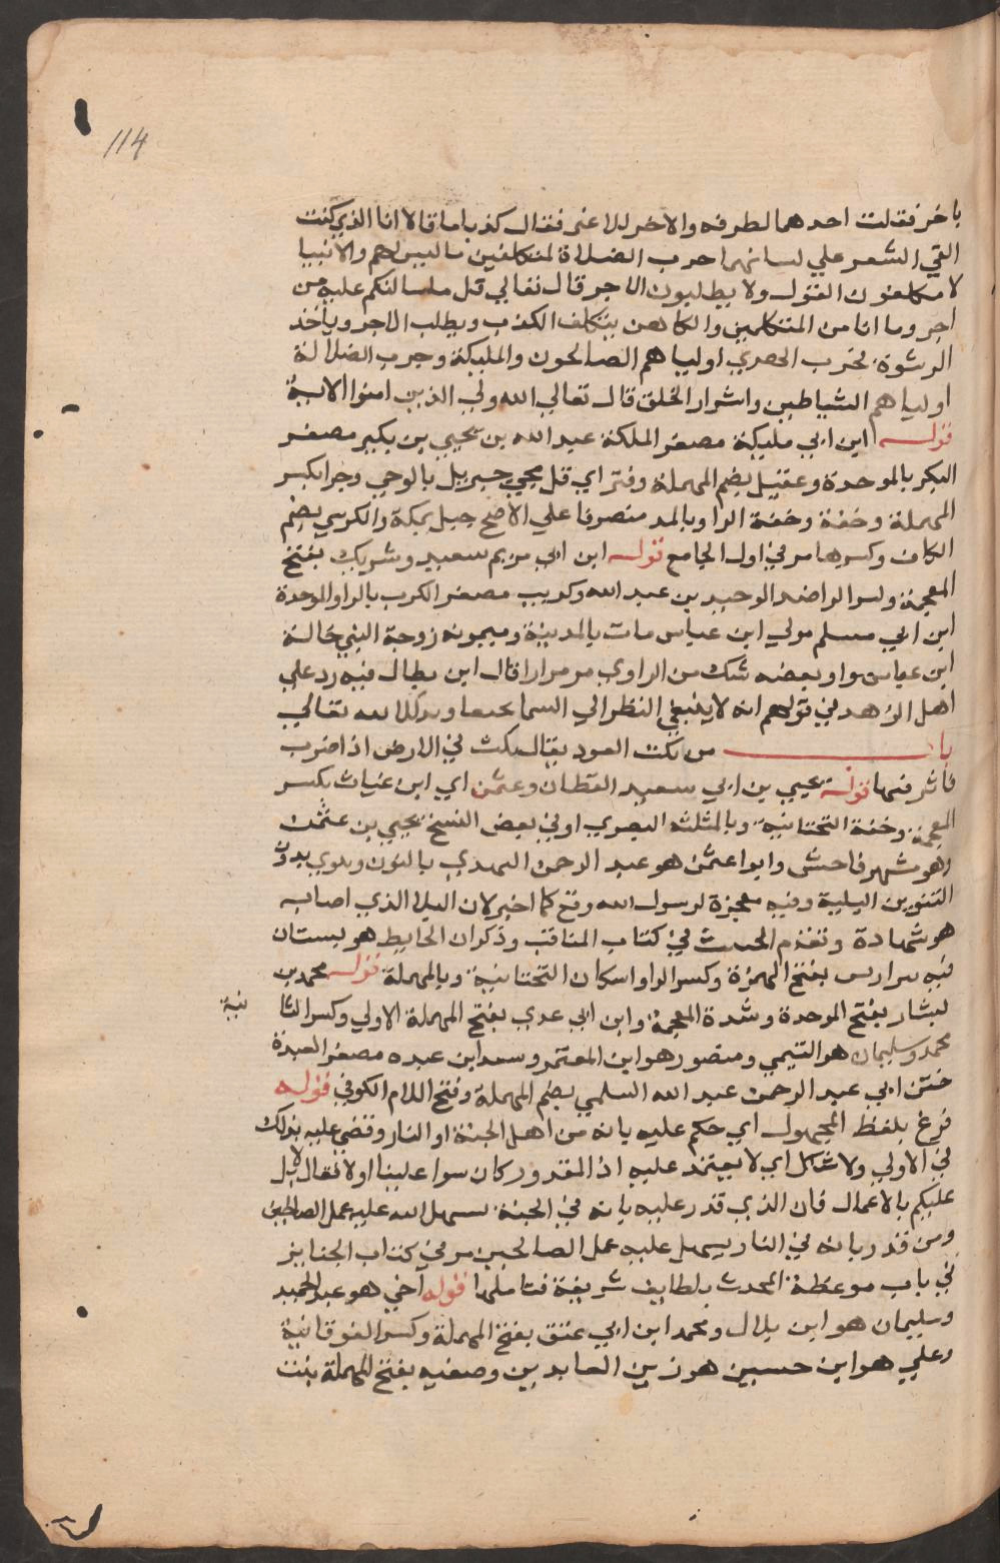 114
باخر فقلت احدهما لطرفه والاخر للاعشى فقال كذبا ما قالا انا الذي كنت
القي الشعر علي لسانهما حرب الضلالة لمتكلفين ما ليس لهم والانبيا
لا يتكلفون القول ولا يطلبون الاجر قال تعالي قل ما سالتكم عليه من
اجر وما انا من المتكلفين والكاهن يتكلف الكذب ويطلب الاجر وياخذ
الرشوة فحزب اوليا هم الصالحون والمليكة وحزب الضلالة
اولياهم الشياطين واشرار الخلق قال تعالي الله ولي الذين امنوا الاية
قوله ابن ابي مليكة مصغر الملكة عبد الله بن يحيي بن بكير مصغر
البكر بالموحدة وعقيل بضم المهملة وفتر اي قل مجي جبريل بالوحي وحرا بكسر
المهملة وخفة الرا وبالمد منصرفا علي الاصح جبل بمكة والكرسي بضم
الكاف وكسرها مر في اول الجامع قوله ابن ابي مريم سعيد وشريك بفتح
المعجمة وكسر الرا ضد الوحيد بن عبد الله وكريب مصغر الكرب بالرا والموحدة
ابن ابي مسلم مولي ابن عباس مات بالمدينة وميمونه زوجة النبي خالة
ابن عباس واو بعضه شك من الراوي مر مرارا قال ابن بطال فيه رد علي
اهل الزهد في قولهم انه لا ينبغي النظر الي السما تخشعا وتذللا لله تعالي
باب من نكت العود يقال نكت في الارض اذا ضرب
فاثر فيها قوله يحيي بن ابي سعيد القطان وعثمن اي ابن غياث بكسر
المعجمة وخفة التحتانية وبالمثلثه البصري اوفي بعض النسخ يحيي بن عثمن
وهو سهو فاحش وابو اعثمن هو عبد الرحمن النهدي بالنون وبلوي بدون
التنوين البلية وفيه معجزة لرسول الله وقع كما اخبر لان البلا الذي اصابه
هو شهادة وتقدم الحديث في كتاب المناقب وذكر ان الحايط هو بستان
فيه بير اريس بفتح الهمزة وكسر الرا واسكان التحتانية وبالمهملة قوله محمد بن
بشار بفتح الموحدة وشدة المعجمة وابن ابي عدي بفتح المهملة الاولي وكسر الثا نية
محمد وسليمان هو التيمي ومنصور هو ابن المعتمر وسعد ابن عبده مصغر العبدة
ختن ابي عبد الرحمن عبد الله السلمي بضم المهملة وفتح اللام الكوفي قوله
فرغ بلفظ المجهول اي حكم عليه بانه من اهل الجنة او النار وقضي عليه بذلك
في الاولي ولا نتكل اي لا يعتمد عليه اذ المقدور كان سوا علينا اولا فقال لا بل
عليكم بالاعمال فان الذي قدر عليه بانه في الجنة يسهل الله عليه عمل الصالحين
ومن قدر بانه في النار يسهل عليه عمل الصالحين مر في كتاب الجنايز
في باب موعظة المحدث بلطايف شريفة فتاملها قوله اخي هو عبد الحميد
وسليمان هو ابن بلال ومحمد ابن ابي عتيق بفتح المهملة وكسر الفوقانية
وعلي هو ابن حسين هو زين العابدين وصفيه بفتح المهملة بنت